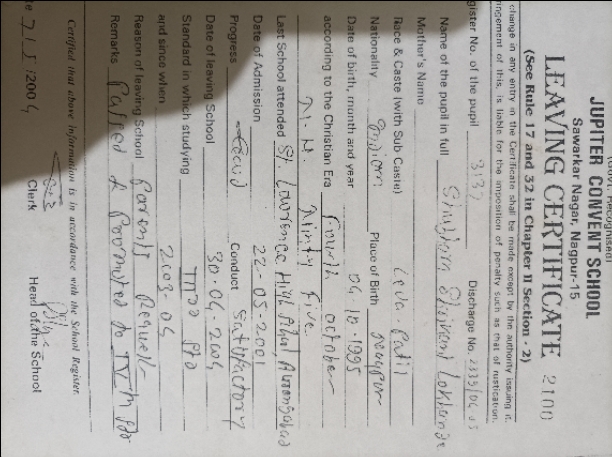 (Govt. Recognised)
JUPITER CONVENT SCHOOL
Sawarkar Nagar, Nagpur-15
LEAVING CERTIFICATE 2100
(See Rule 17 and 32 in Chapter II Section - 2)
change in any entry in the Certificate shall be made except by the authority issuing it.
of this, is liable for the imposition of penalty such as that of rustication.
gister No. of the pupil 3137 Discharge No.
Name of the pupil in full
Mother's Name
Race & Caste (with Sub Caste) Leva Patil
Nationality Indian Place of Birth
Date of birth, month and year 04.10.1995
according to the Christian Era Fourth October
Ninty Five
Last School attended St. Lawrence High School, Aurangabad
Date of Admission 22-05-2001
Progress Good Conduct Satisfactory
Date of leaving School 30.04.2004
Standard in which studying IIIrd Std
and since when 2003-04
Reason of leaving School Parents Request
Remarks Passed & Promoted to IVth Std
Certified that above information is in accordance with the School Register.
te 7/5/2004
Clerk
Head of the School